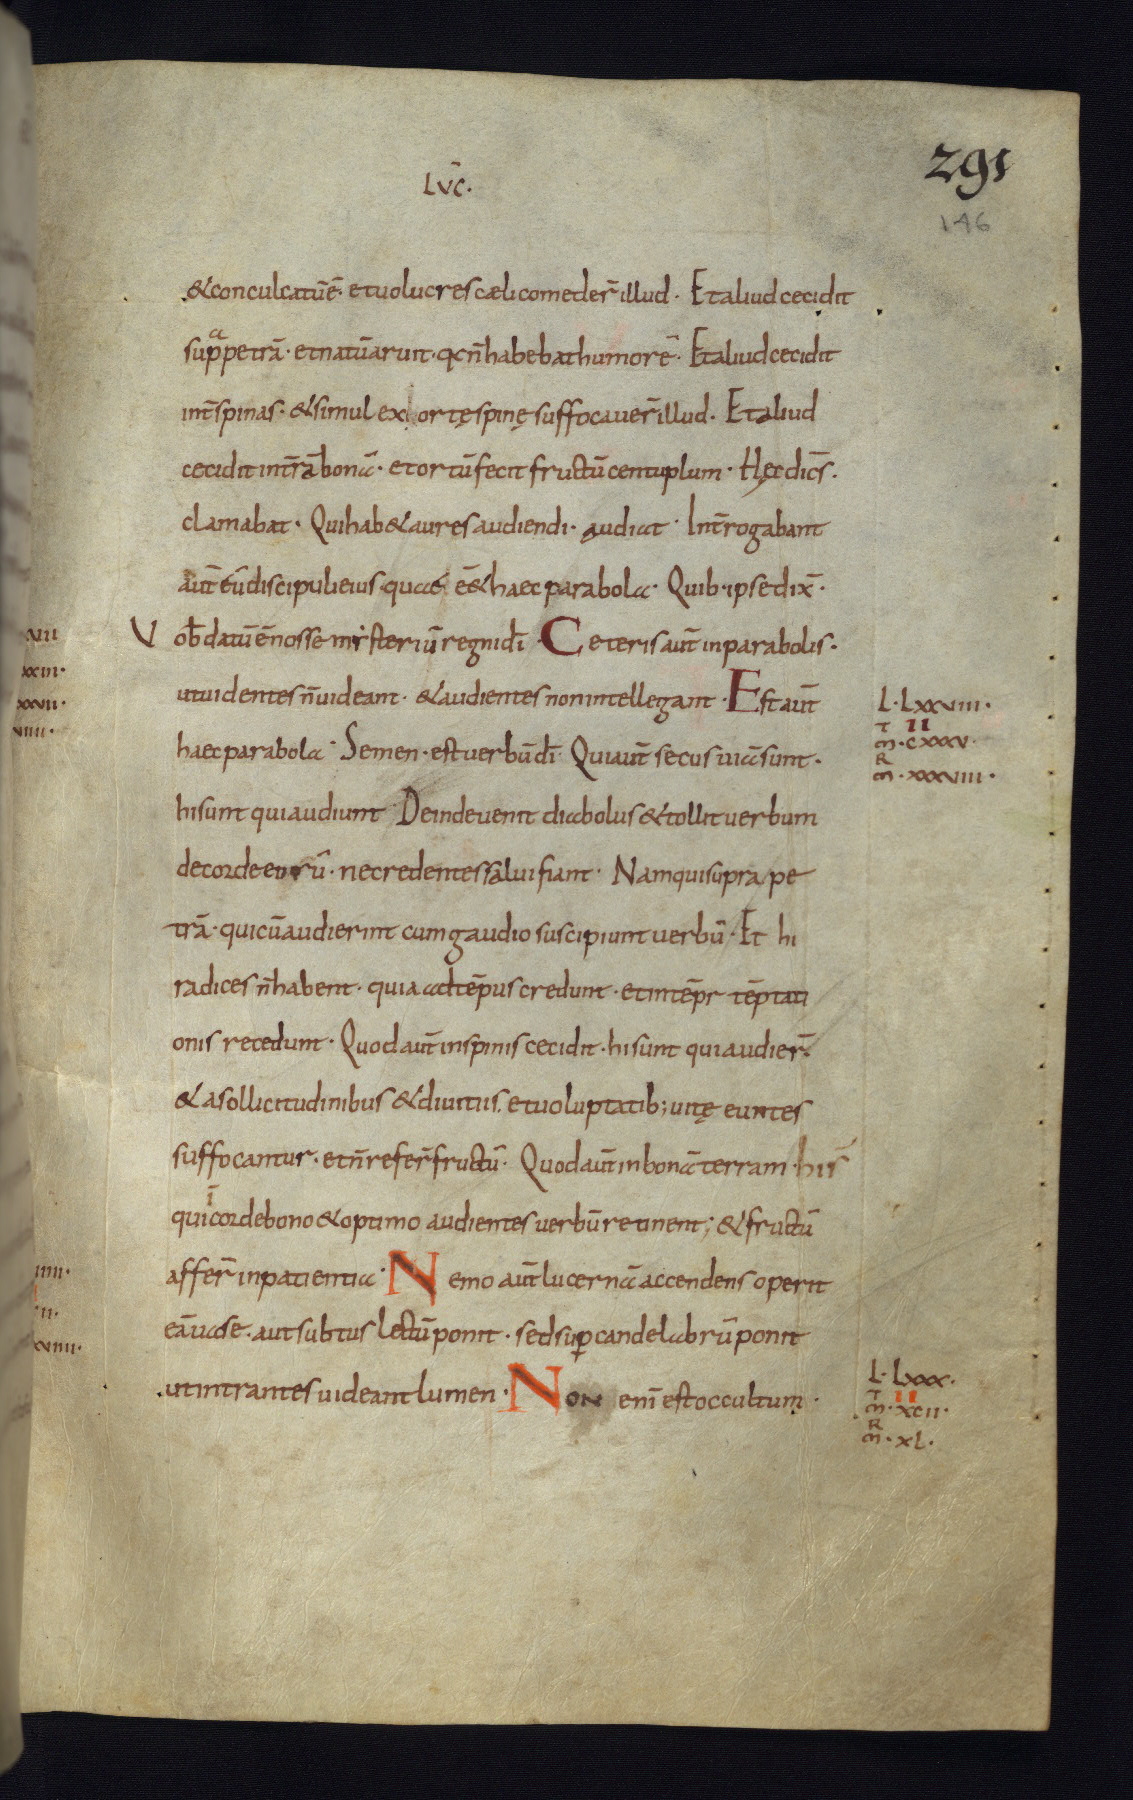 LVC̄.
291
146
&conculcatū ē. et uolucres cæli comeder̄ illud. Et aliud cecidit
supra petrā. et natū aruit. qc n̄ habebat humorē. Et aliud cecidit
int̄ spinas. & simul exortę spinę suffocauer̄ illud. Et aliud
cecidit in t̄rā bonā. et ortū fecit fructū centuplum. Hęc dic̄s.
clamabat. Qui hab& aures audiendi. audiat. Int̄rogabant
aut̄ eū discipuli eius. quae ē& haec parabola. Quib. ipse dix̄.
Vob̄ datū ē nosse misteriū regni dī. Ceteris aut̄ in parabolis.
ut uidentes n̄ uideant. & audientes non intellegant. Est aut̄
haec parabola. Semen. est uerbū dī. Qui aut̄ secus uiā sunt.
hi sunt qui audiunt. Deinde uenit diabolus & tollit uerbum
de corde eorū. ne credentes salui fiant. Nam qui supra pe
trā. qui cū audierint cum gaudio suscipiunt uerbū. Et hi
radices n̄ habent. quia ad tēpus credunt. et in tēpr tēptati
onis recedunt. Quod aut̄ in spinis cecidit. hi sunt qui audier̄.
& a sollicitudinibus & diuitiis. et uoluptatib; uitę euntes
suffocantur. et n̄ refer̄ fructū. Quod aut̄ in bonā terram. hi s̄
qui ī corde bono & optimo audientes uerbū retinent; & fructū
affer̄ in patientia. Nemo aut̄ lucernā accendens operit
eā uase. aut subtus lectū ponit. sed sup candelabrū ponit
ut intrantes uideant lumen. Non enī est occultum.
VII
XXIII.
XXVII.
VIIII.
L. LXXVIII.
T II
M. CXXXV.
R
M. XXXVIII.
IIII.
II.
XVIIII.
L. LXXX.
T II
M. XCII.
R
M. XL.